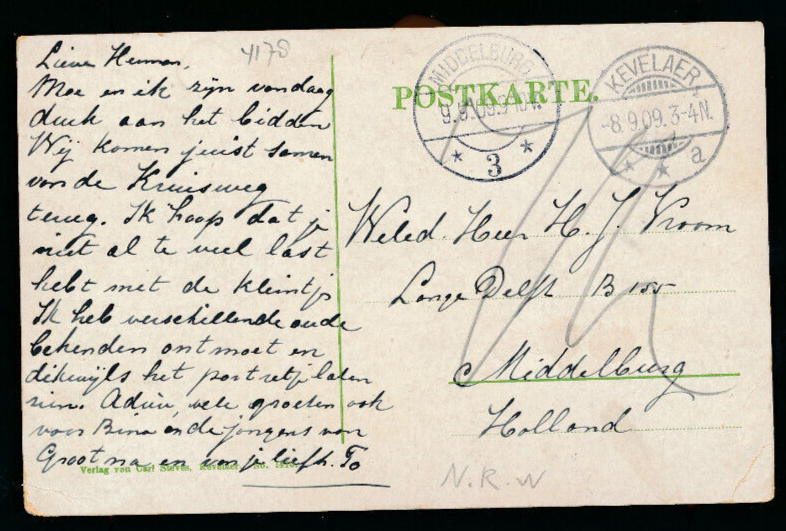 Lieve Herman,
Moe en ik zijn vandaag
druk aan het bidden
Wij komen juist samen
van de Kruisweg
terug. Ik hoop dat je
niet al te veel last
hebt met de kleintjes
Ik heb verschillende oude
bekenden ontmoet en
dikwijls het portretje laten
zien. Adieu, vele groeten ook
voor Bena en de jongens van
Grootma en van je liefh. To
Verlag von Carl Steves, Kevelaer. No.
4178
POSTKARTE.
MIDDELBURG
9.9.09.
3
KEVELAER
-8.9.09.3-4N.
* * a
Weled. Heer H. J. Vroom
Lange Delft B 155
Middelburg
Holland
N.R.W